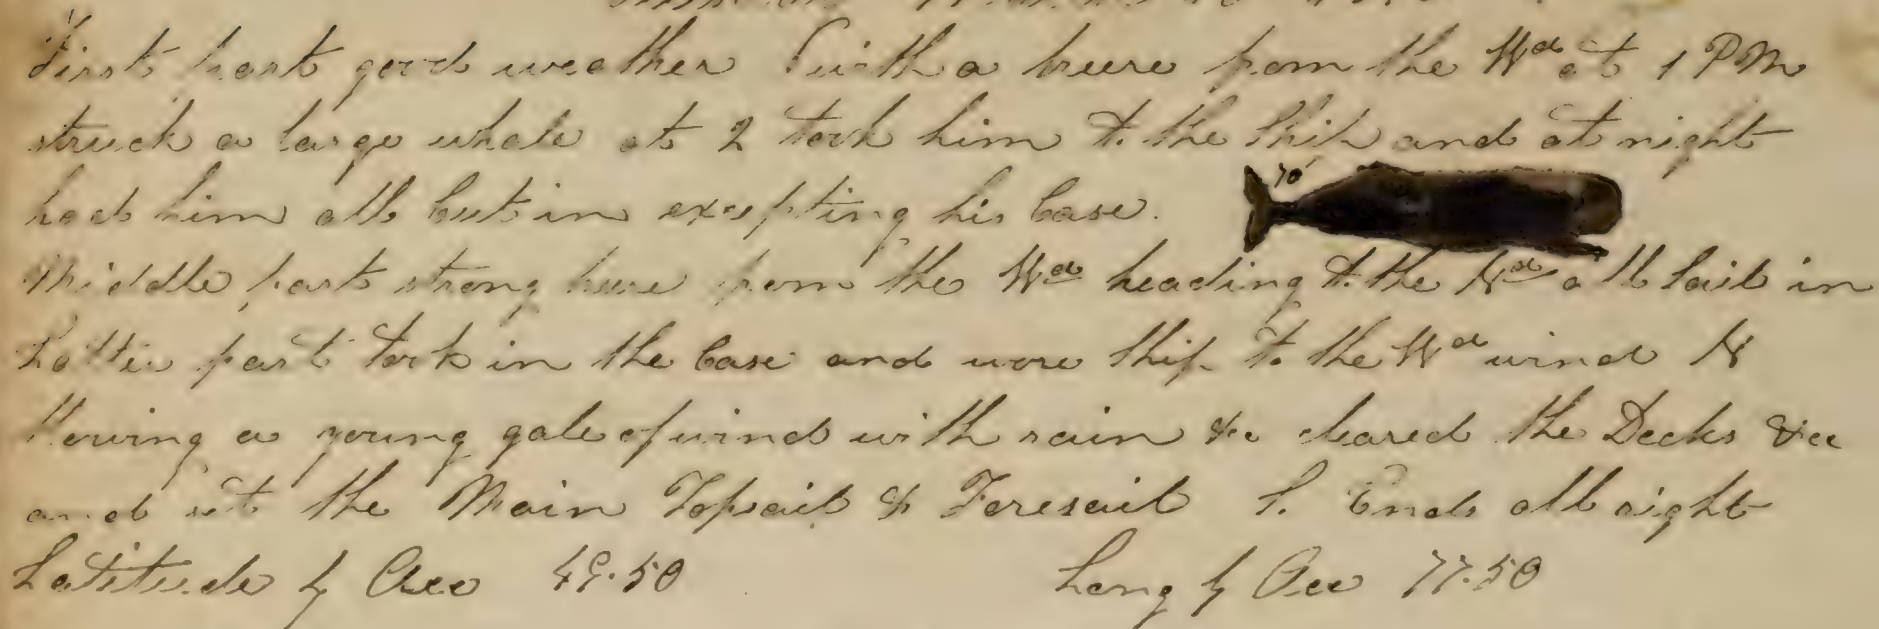 First part good weather with a breeze from the Wd at 1 PM
struck a large whale at 2 took him to the Ship and at night
had him all but in excepting his Case. 70
Middle part strong breeze from the Wd heading to the Nd all Sail in
Latter part took in the Case and wore Ship to the Wd wind N
Blowing a young gale of wind with rain &c cleared the Decks &cc
and set the Main Topsail & Foresail S. Ends all right
Latitude by Acc 49.50 Long by Acc 77.50